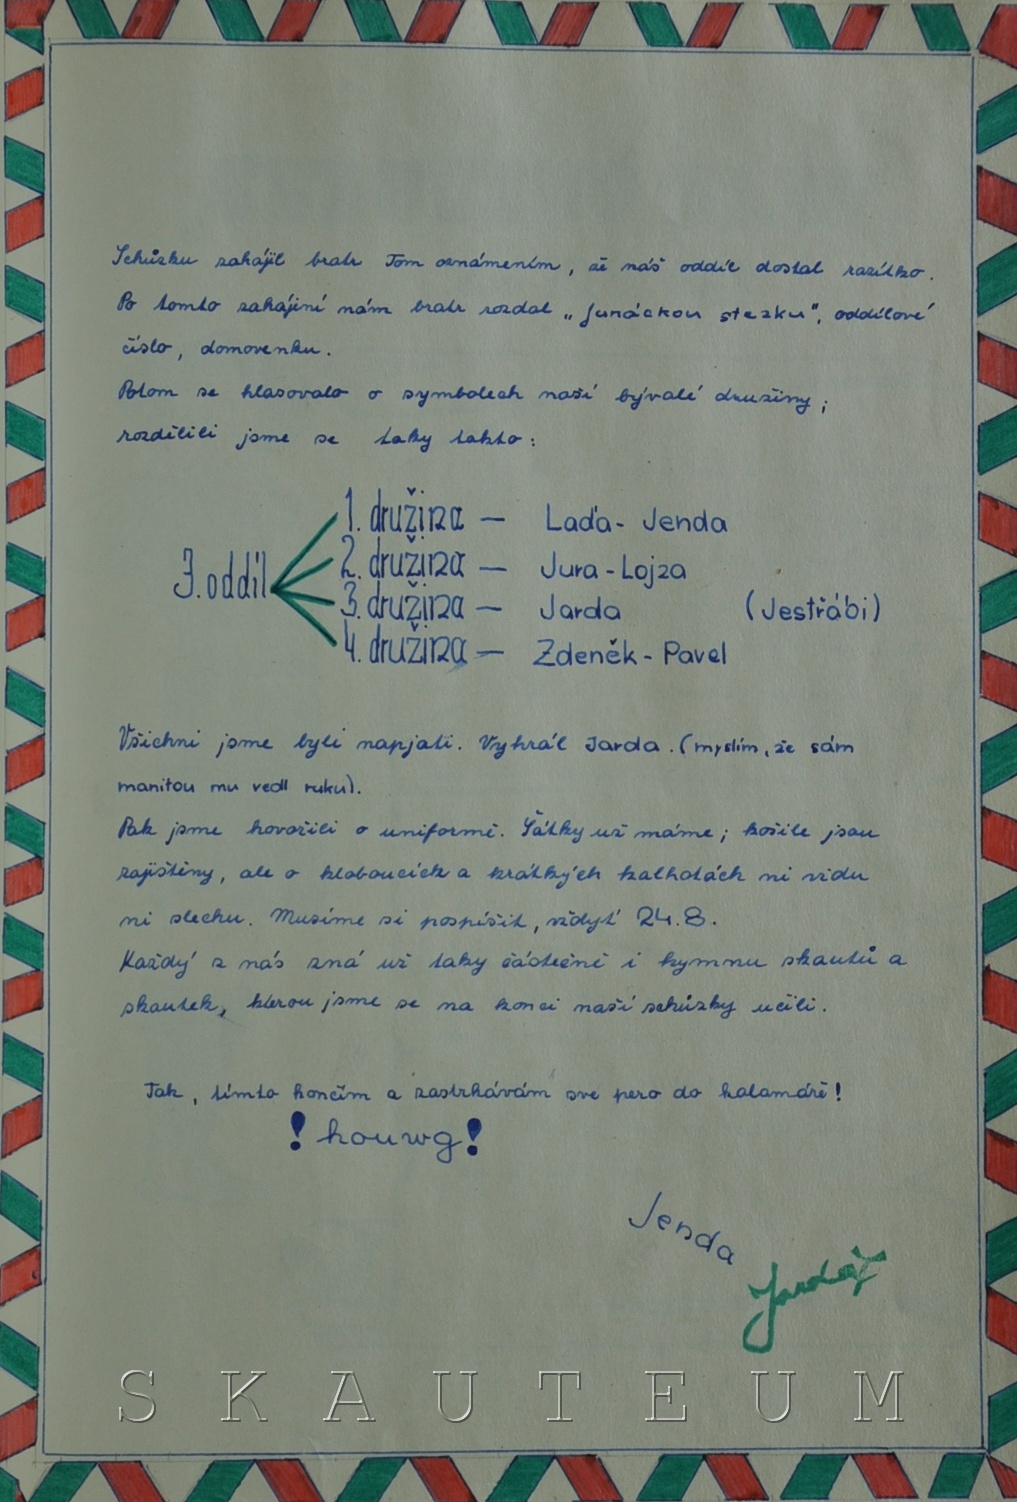 Schůzku zahájil bratr Tom oznámením, že náš oddíl dostal razítko.
Po tomto zahájení nám bratr rozdal „Junáckou stezku", oddílové
číslo, domovenku.
Potom se hlasovalo o symbolech naší bývalé družiny;
rozdělili jsme se taky takto:
1. družina — Laďa - Jenda
3. oddíl 2. družina — Jura - Lojza
3. družina — Jarda (Jestřábi)
4. družina — Zdeněk - Pavel
Všichni jsme byli napjati. Vyhrál Jarda. (myslím, že sám
manitou mu vedl ruku).
Pak jsme hovořili o uniformě. Šátky už máme; košile jsou
zajištěny, ale o kloboucích a krátkých kalhotách ni vidu
ni slechu. Musíme si pospíšit, vždyť 24.8.
Každý z nás zná už taky částečně i hymnu skautů a
skautek, kterou jsme se na konci naší schůzky učili.
Tak, tímto končím a zastrkávám své pero do kalamáře!
! houwg !
Jenda
SKAUTEUM